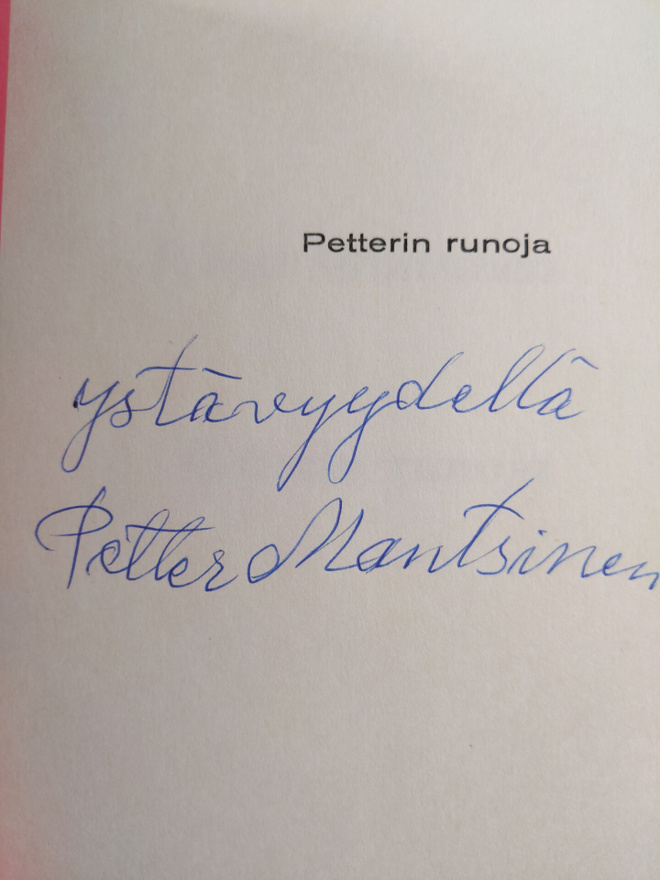 Petterin runoja
ystävyydellä
Petter Mantsinen